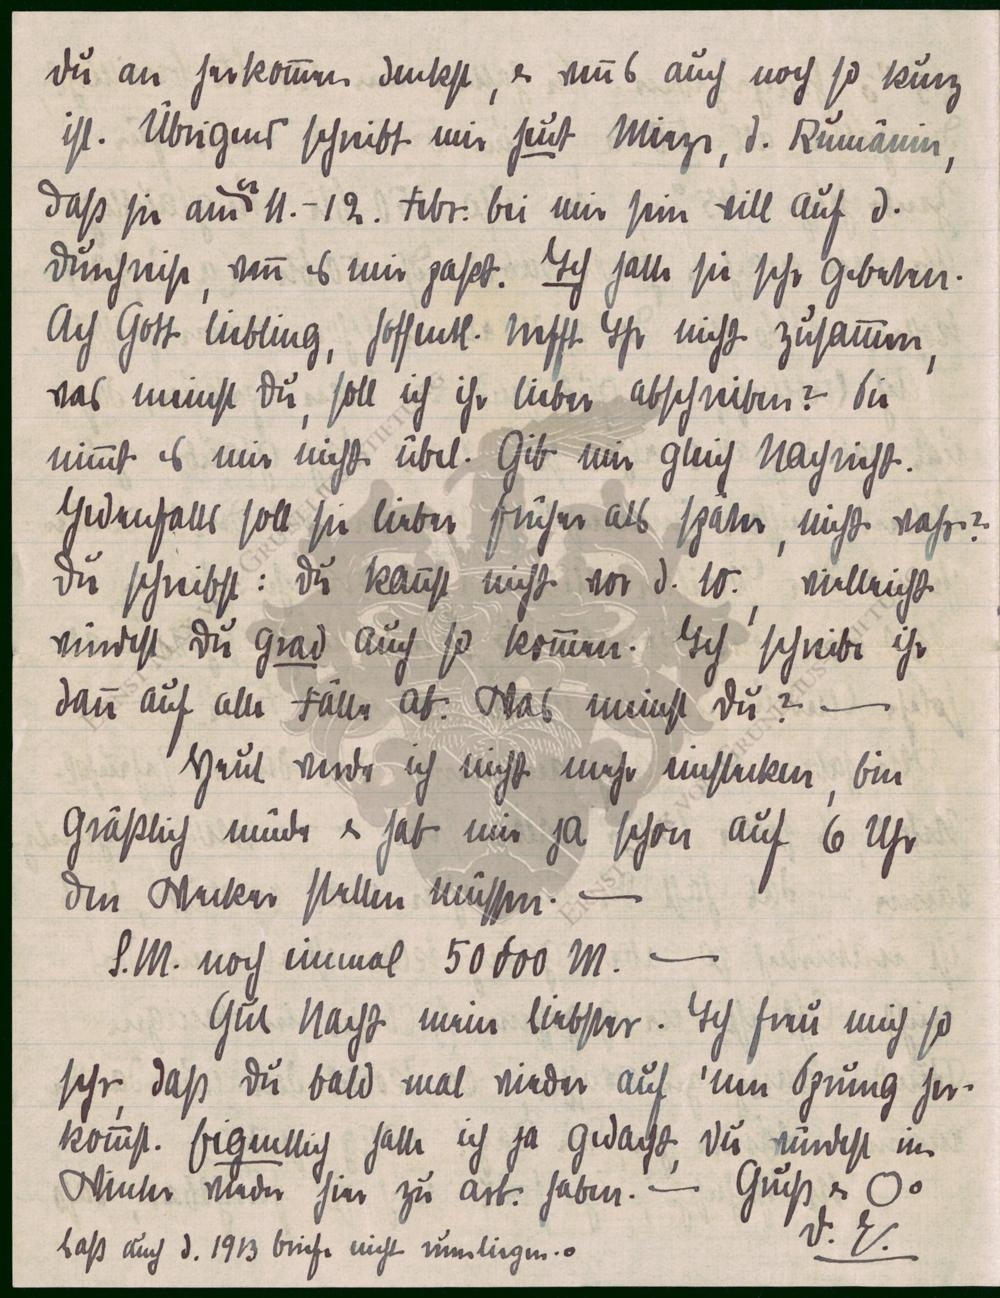 du an herkom̅en denkst, & wen̅s auch noch so kurz
ist. Übrigens schreibt mir heut Mieze, d. Rumänin,
daß sie am 11.-12. Febr. bei mir sein will auf d.
Durchreise, wen̅ es mir paßt. Ich hatte sie sehr gebeten.
Ach Gott Liebling, hoffentl. trefft Ihr nicht zusam̅en,
was meinst Du, soll ich ihr lieber abschreiben? Sie
nim̅t es mir nicht übel. Gib mir gleich Nachricht.
Jedenfalls soll sie lieber früher als später, nicht wahr?
Du schreibst: Du kan̅st nicht vor d. 10., vielleicht
würdest Du grad auch so kom̅en. Ich schreibe ihr
dan̅ auf alle Fälle ab. Was meinst Du? —
Heut werde ich nicht mehr einstecken, bin
gräßlich müde & hab mir ja schon auf 6 Uhr
den Wecker stellen müssen. —
S.M. noch einmal 50 000 M. —
Gut Nacht mein Liebster. Ich freu mich so
sehr, daß Du bald mal wieder auf 'nen Sprung her-
kom̅st. Eigentlich hatte ich ja gedacht, Du würdest im
Winter wieder hier zu arb. haben. — Gruß & O o
D. E.
Laß auch d. 1913 Briefe nicht rumliegen.
ERNST MAX VON GRUNELIUS STIFTUNG
ERNST MAX VON GRUNELIUS STIFTUNG